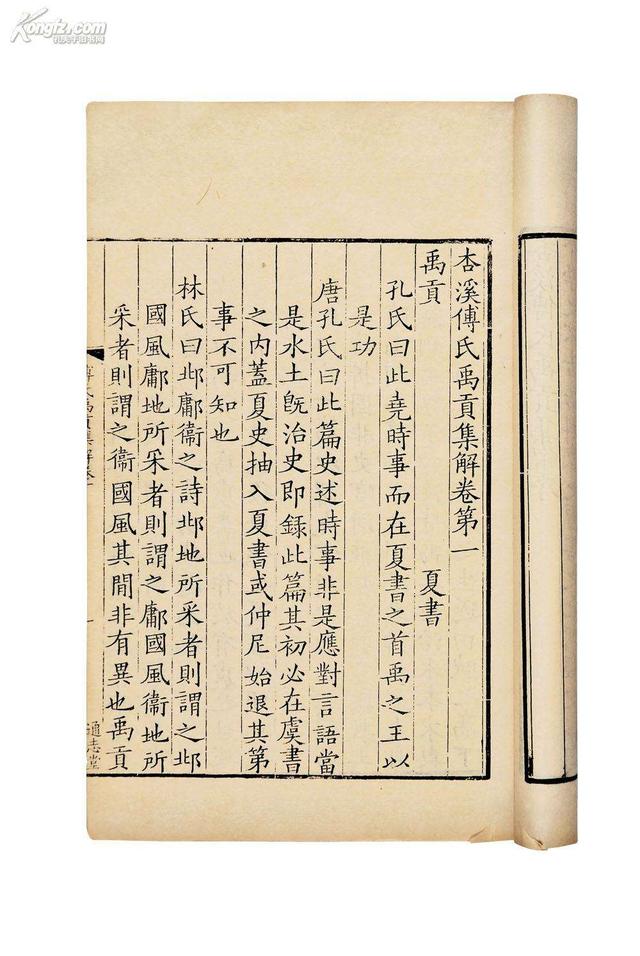 Kongfz.com
孔夫子旧书网
杏溪傅氏禹貢集解卷第一
禹貢　夏書
孔氏曰此堯時事而在夏書之首禹之王以
是功
唐孔氏曰此篇史述時事非是應對言語當
是水土旣治史即録此篇其初必在虞書
之內蓋夏史抽入夏書或仲尼始退其第
事不可知也
林氏曰邶鄘衞之詩邶地所采者則謂之邶
國風鄘地所采者則謂之鄘國風衞地所
采者則謂之衞國風其閒非有異也禹貢
傅氏禹貢集解卷一
一
通志堂